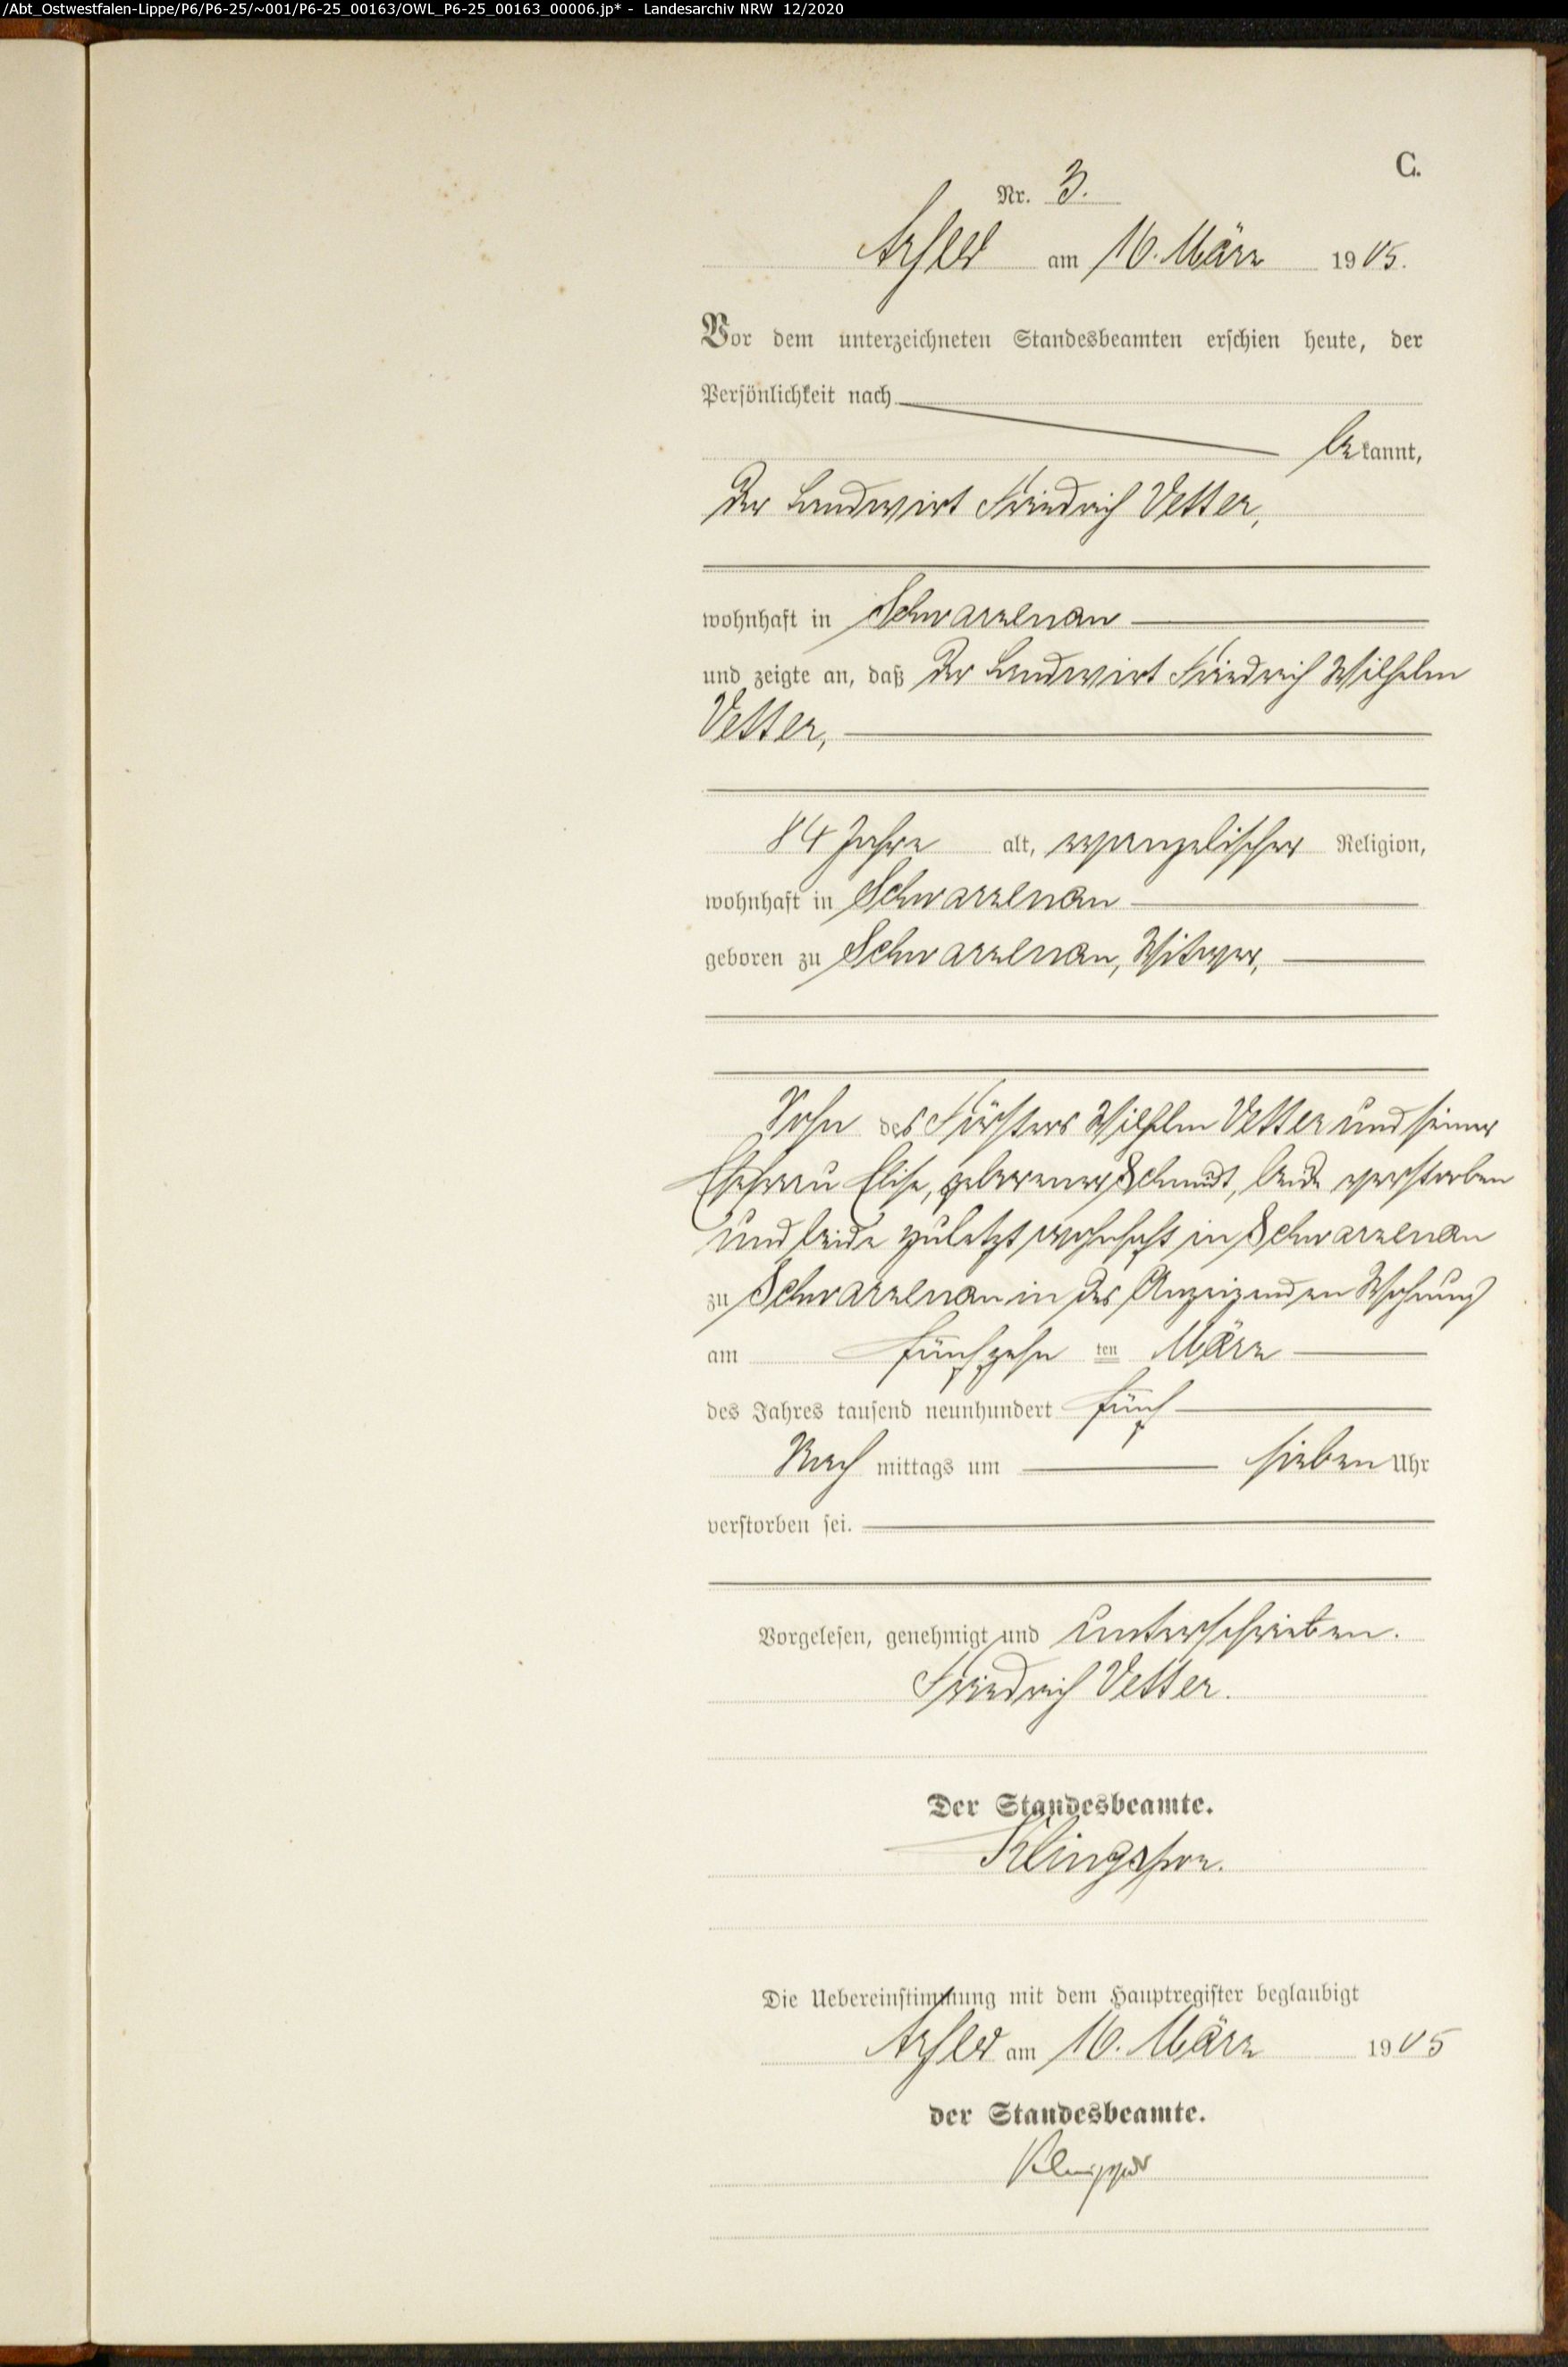 /Abt_Ostwestfalen-Lippe/P6/P6-25/~001/P6-25_00163/OWL_P6-25_00163_00006.jp* - Landesarchiv NRW 12/2020
C.
Nr. 3.
Arfeld am 16. März 1905.
Vor dem unterzeichneten Standesbeamten erschien heute, der
Persönlichkeit nach
bekannt,
der Landwirt Friedrich Vetter,
wohnhaft in Schwarzenau
und zeigte an, daß der Landwirt Friedrich Wilhelm
Vetter,
84 Jahre alt, evangelischer Religion,
wohnhaft in Schwarzenau
geboren zu Schwarzenau, Witwer,
Sohn des Försters Wilhelm Vetter und seiner
Ehefrau Elise, geborener Schmidt, beide verstorben
und beide zuletzt wohnhaft in Schwarzenau
zu Schwarzenau in des Anzeigenden Wohnung
am fünfzehn ten März
des Jahres tausend neunhundert fünf
Nach mittags um sieben Uhr
verstorben sei.
Vorgelesen, genehmigt und unterschrieben.
Friedrich Vetter.
Der Standesbeamte.
Klingspor.
Die Uebereinstimmung mit dem Hauptregister beglaubigt
Arfeld am 16. März 1905
der Standesbeamte.